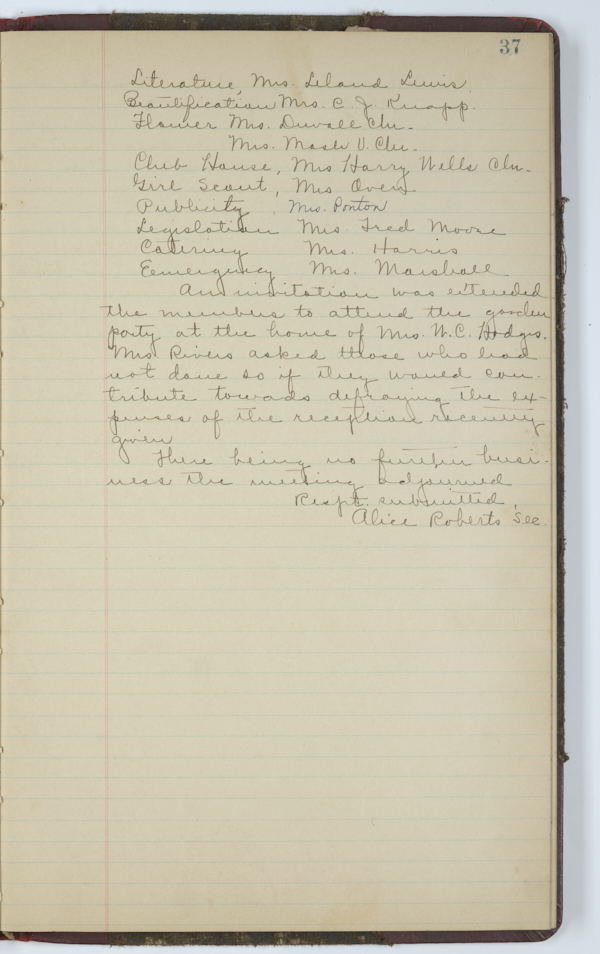 37
Literature, Mrs. Leland Lewis.
Beautification Mrs. C. J. Knapp.
Flower Mrs. Duvall Chn.
Mrs. V. Chn.
Club House, Mrs Harry Wells Chn.
Girl Scout, Mrs Oven
Publicity, Mrs. Ponton
Legislation Mrs. Fred Moore
Catering Mrs. Harris
Eemergency Mrs. Marshall
An invitation was extended
the members to attend the garden
party at the home of Mrs. W. C. Hodges.
Mrs. Rivers asked those who had
not done so if they would con-
tribute towards defraying the ex-
penses of the reception recently
given
There being no further busi-
ness the meeting adjourned
Respt. submitted,
Alice Roberts Sec.